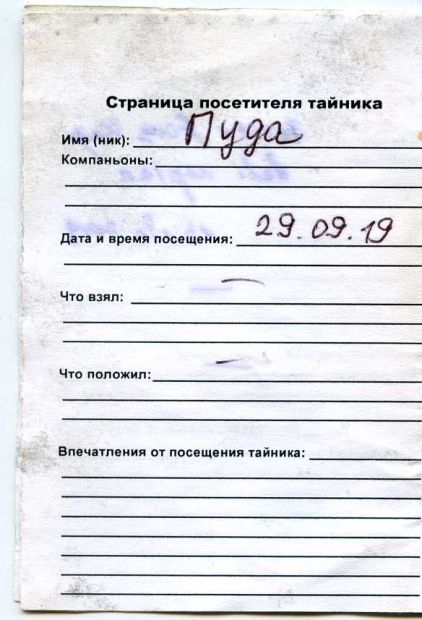 Страница посетителя тайника
Имя (ник): Пуда
Компаньоны:
Дата и время посещения: 29.09.19
Что взял: —
Что положил: —
Впечатления от посещения тайника: